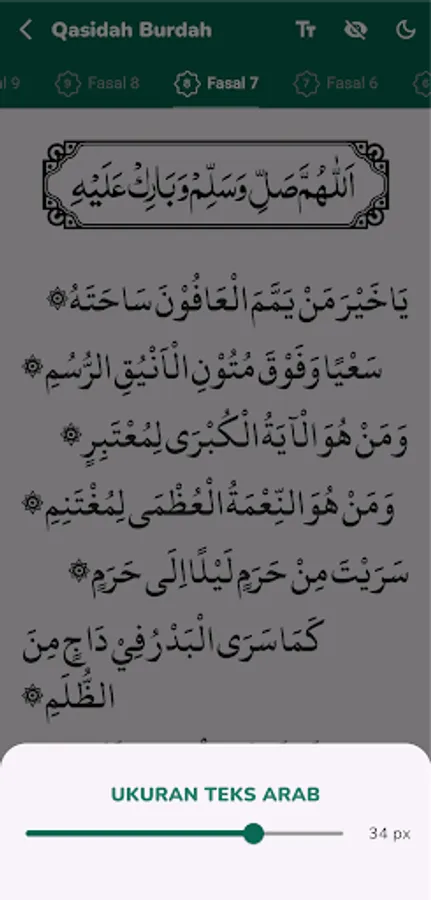 Qasidah Burdah
Fasal 8
Fasal 7
Fasal 6
اَللّٰهُمَّ صَلِّ وَسَلِّمْ وَبَارِكْ عَلَيْهِ
يَا خَيْرَ مَنْ يَمَّمَ الْعَافُوْنَ سَاحَتَهُ ۞
سَعْيًا وَفَوْقَ مُتُوْنِ الْاَنْيُقِ الرُّسُمِ ۞
وَمَنْ هُوَ الْآيَةُ الْكُبْرَى لِمُعْتَبِرٍ ۞
وَمَنْ هُوَ النِّعْمَةُ الْعُظْمَى لِمُغْتَنِمِ ۞
سَرَيْتَ مِنْ حَرَمٍ لَيْلًا اِلَى حَرَمٍ ۞
كَمَا سَرَى الْبَدْرُ فِيْ دَاجٍ مِنَ
الظُّلَمِ ۞
UKURAN TEKS ARAB
34 px